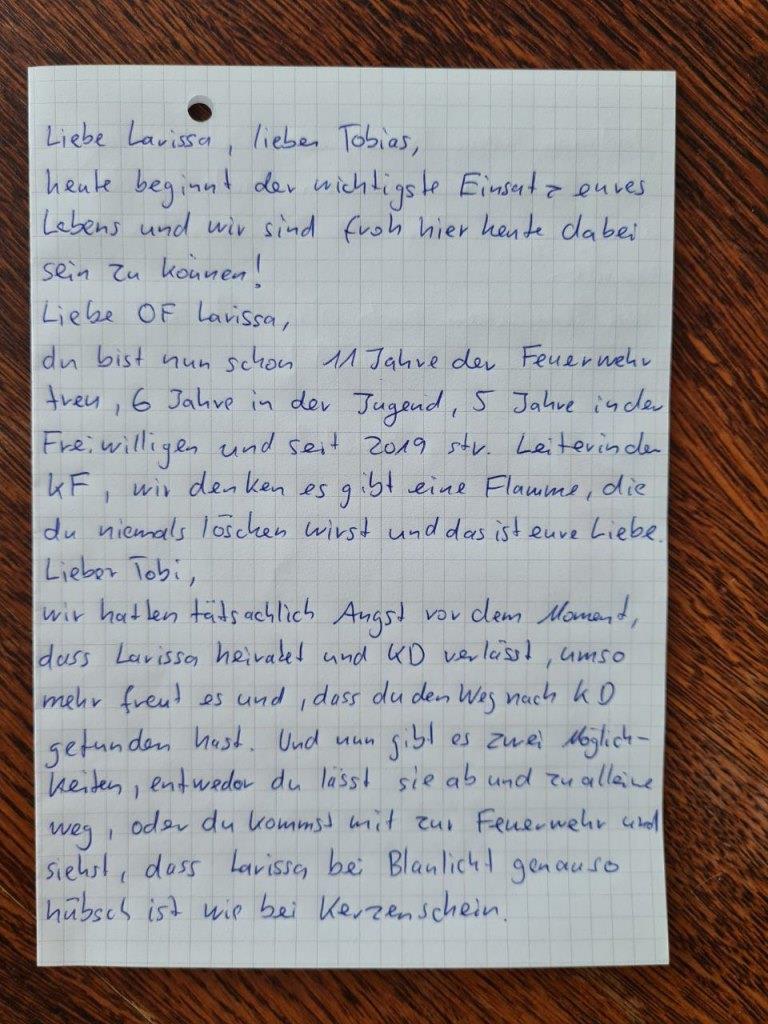 Liebe Larissa, lieber Tobias,
heute beginnt der wichtigste Einsatz eures
Lebens und wir sind froh hier heute dabei
sein zu können!
Liebe OF Larissa,
du bist nun schon 11 Jahre der Feuerwehr
treu, 6 Jahre in der Jugend, 5 Jahre in der
Freiwilligen und seit 2019 stv. Leiterin der
KF, wir denken es gibt eine Flamme, die
du niemals löschen wirst und das ist eure Liebe.
Lieber Tobi,
wir hatten tätsachlich Angst vor dem Moment,
dass Larissa heiratet und KD verlässt, umso
mehr freut es und, dass du den Weg nach KD
gefunden hast. Und nun gibt es zwei Möglich-
keiten, entweder du lässt sie ab und zu alleine
weg, oder du kommst mit zur Feuerwehr und
siehst, dass Larissa bei Blaulicht genauso
hübsch ist wie bei Kerzenschein.